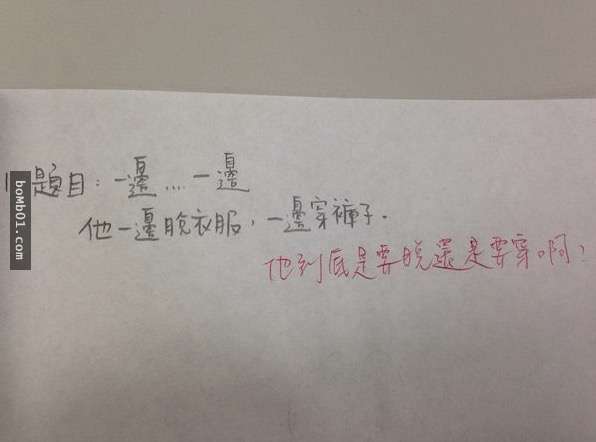 題目：一邊....一邊
他一邊脫衣服，一邊穿褲子.
他到底是要脫還是要穿啊！
boMb01.com